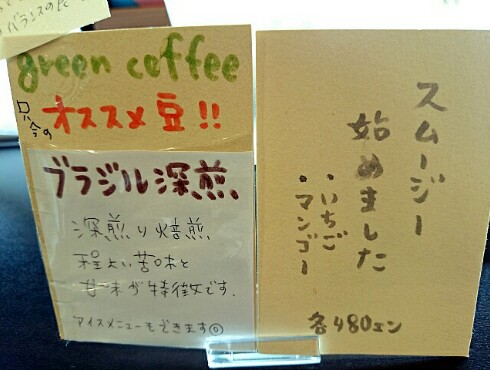 バランスの
green coffee
只今の
オススメ豆!!
ブラジル深煎
深煎り焙煎
程よい苦味と
甘味が特徴です.
アイスメニューもできます◎
スムージー
始めました
・いちご
・マンゴー
各480エン